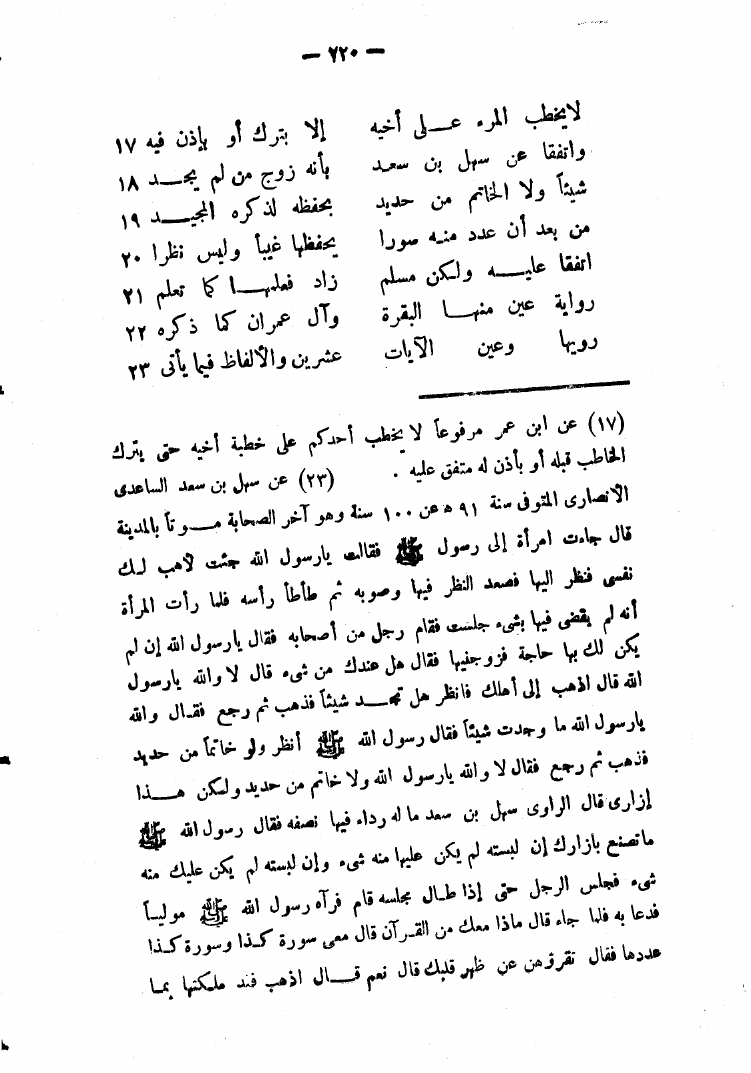 — ٢٢٠ —
لايخطب المرء عــلى أخيه إلا بترك أو بإذن فيه ١٧
واتفقا عن سهل بن سعد بأنه زوج من لم يجــد ١٨
شيئاً ولا الخاتم من حديد بحفظه لذكره المجيــد ١٩
من بعد أن عدد منه سورا يحفظها غيباً وليس نظرا ٢٠
اتفقا عليــه ولكن مسلم زاد فعلمهــا كما تعلم ٢١
رواية عين منهــا البقرة وآل عمران كما ذكره ٢٢
رويها وعين الآيات عشرين والألفاظ فيما يأتى ٢٣
(١٧) عن ابن عمر مرفوعاً لا يخطب أحدكم على خطبة أخيه حتى يترك
الخاطب قبله أو بأذن له متفق عليه . (٢٣) عن سهل بن سعد الساعدى
الانصارى المتوفى سنة ٩١ ه عن ١٠٠ سنة وهو آخر الصحابة مــوتاً بالمدينة
قال جاءت امرأة إلى رسول ﷺ فقالت يارسول الله جئت لاهب لك
نفسى فنظر اليها فصعد النظر فيها وصوبه ثم طأطأ رأسه فلما رأت المرأة
أنه لم يقضى فيها بشىء جلست فقام رجل من أصحابه فقال يارسول الله إن لم
يكن لك بها حاجة فزوجنيها فقال هل عندك من شىء قال لا والله يارسول
الله قال اذهب إلى أهلك فانظر هل تجــد شيئاً فذهب ثم رجع فقــال والله
يارسول الله ما وجدت شيئاً فقال رسول الله ﷺ أنظر ولو خاتماً من حديد
فذهب ثم رجع فقال لا والله يارسول الله ولا خاتم من حديد ولكن هــذا
إزارى قال الراوى سهل بن سعد ما له رداء فيها نصفه فقال رسول الله ﷺ
ماتصنع بازارك إن لبسته لم يكن عليها منه شىء وإن لبسته لم يكن عليك منه
شىء فجلس الرجل حتى إذا طــال مجلسه قام فرآه رسول الله ﷺ موليــاً
فدعا به فلما جاء قال ماذا معك من القرآن قال معى سورة كــذا وسورة كــذا
عددها فقال تقرؤهن عن ظهر قلبك قال نعم قــال اذهب فند ملكتها بمــا